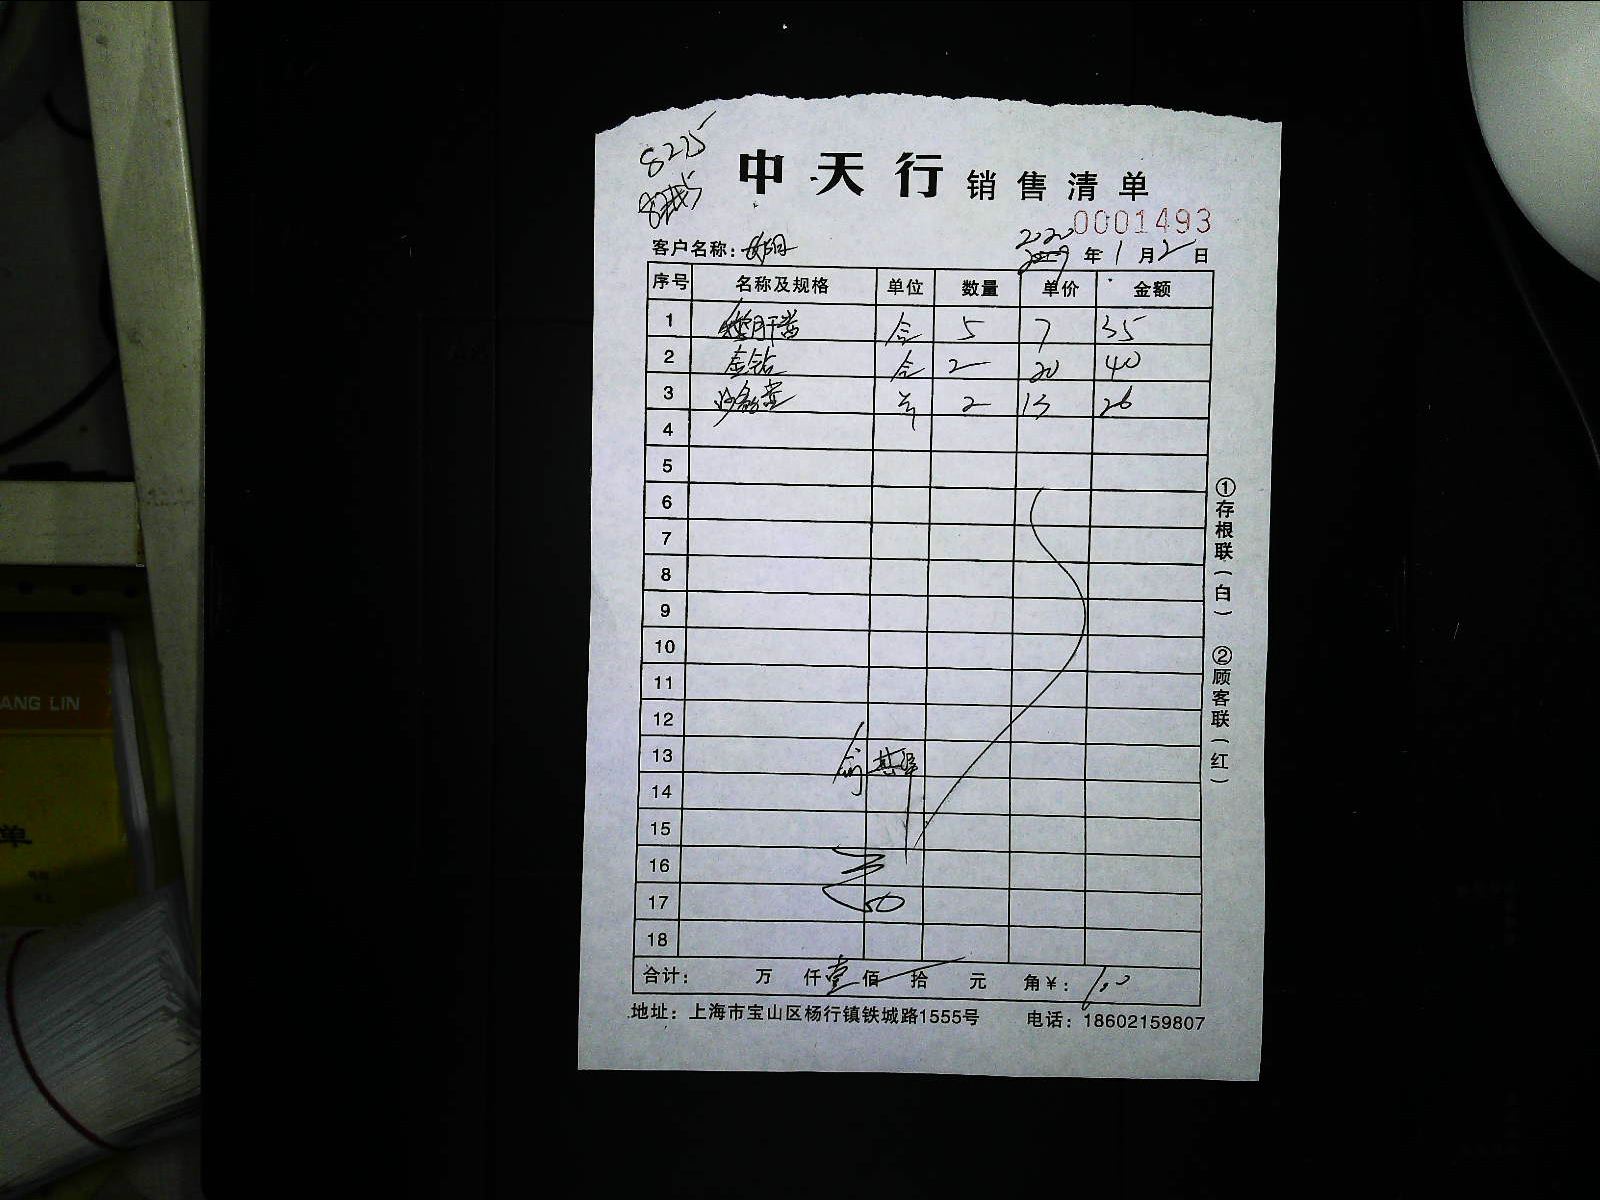 8225
中天行 销售清单
0001493
客户名称：
2020年1月2日
序号 名称及规格 单位 数量 单价 金额
1 合 5 7 35
2 金钻 合 2 20 40
3 2 13 26
4
5
6
7
8
9
10
11
12
13
14
15
16
17 50
18
合计： 万 仟壹佰 拾 元 角¥：
地址：上海市宝山区杨行镇铁城路1555号 电话：18602159807
①存根联（白） ②顾客联（红）
ANG LIN
单